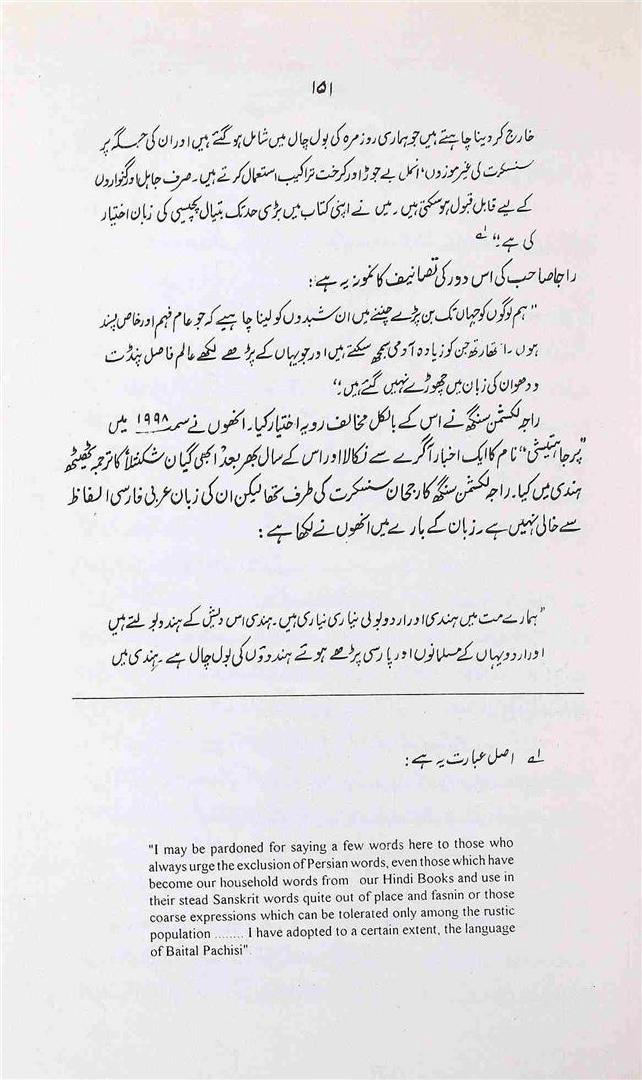 ۱۵۱
خارج کر دینا چاہتے ہیں جو ہماری روزمرہ کی بول چال میں شامل ہو گئے ہیں اور ان کی جگہ پر
سنسکرت کی غیر موزوں، انمل بے جوڑ اور کرخت تراکیب استعمال کرتے ہیں۔ صرف جاہل اور گنواروں
کے لیے قابل قبول ہو سکتی ہیں۔ میں نے اپنی کتاب میں بڑی حد تک بتیال پچیسی کی زبان اختیار
کی ہے۔" لے
راجا صاحب کی اس دور کی تصانیف کا نمونہ یہ ہے:
"ہم لوگوں کو جہاں تک بن پڑے چننے میں ان شبدوں کو لینا چاہیے کہ جو عام فہم اور خاص پسند
ہوں۔ ارتھارتھ جن کو زیادہ آدمی سمجھ سکتے ہیں اور جو یہاں کے پڑھے لکھے عالم فاضل پنڈت
ودھوان کی زبان میں چھوڑے نہیں گئے ہیں۔"
راجہ لکشمن سنگھ نے اس کے بالکل مخالف رویہ اختیار کیا۔ انھوں نے سمت ۱۹۹۸ میں
"پرجا ہتیشی" نام کا ایک اخبار آگرے سے نکالا اور اس کے سال بھر بعد "ابھی گیان شکنتلا" کا ترجمہ ٹھیٹھ
ہندی میں کیا۔ راجہ لکشمن سنگھ کا رجحان سنسکرت کی طرف تھا لیکن ان کی زبان عربی فارسی الفاظ
سے خالی نہیں ہے۔ زبان کے بارے میں انھوں نے لکھا ہے:
"ہمارے مت میں ہندی اور اردو بولی نیاری نیاری ہیں۔ ہندی اس دیش کے ہندو بولتے ہیں
اور اردو یہاں کے مسلمانوں اور پارسی پڑھے ہوئے ہندوؤں کی بول چال ہے۔ ہندی میں
لے اصل عبارت یہ ہے:
"I may be pardoned for saying a few words here to those who
always urge the exclusion of Persian words, even those which have
become our household words from our Hindi Books and use in
their stead Sanskrit words quite out of place and fasnin or those
coarse expressions which can be tolerated only among the rustic
population ........ I have adopted to a certain extent, the language
of Baital Pachisi".